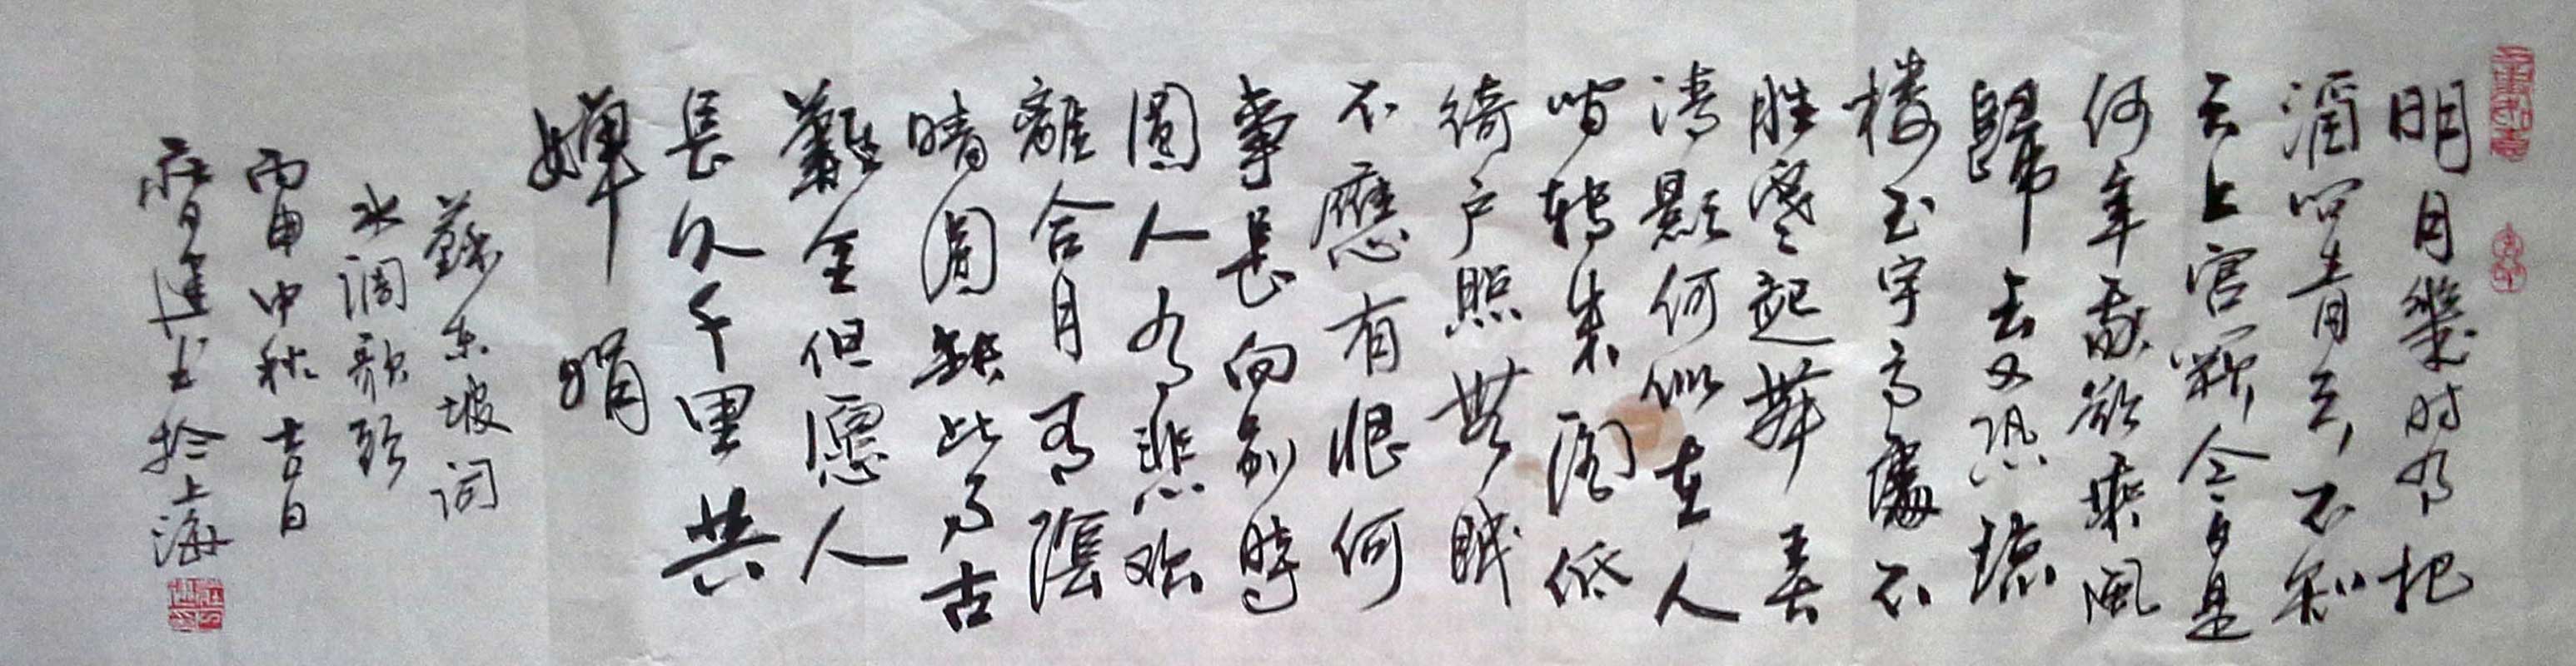 明月幾时有把
酒问青天不知
天上宫闕今夕是
何年我欲乘風
歸去又恐琼
楼玉宇高處不
胜寒起舞弄
清影何似在人
间转朱阁低
绮户照無眠
不應有恨何
事長向别時
圓人有悲欢
離合月有陰
晴圆缺此事古
難全但愿人
長久千里共
嬋娟
蘇东坡词
水调歌头
丙申中秋吉日
進书於上海